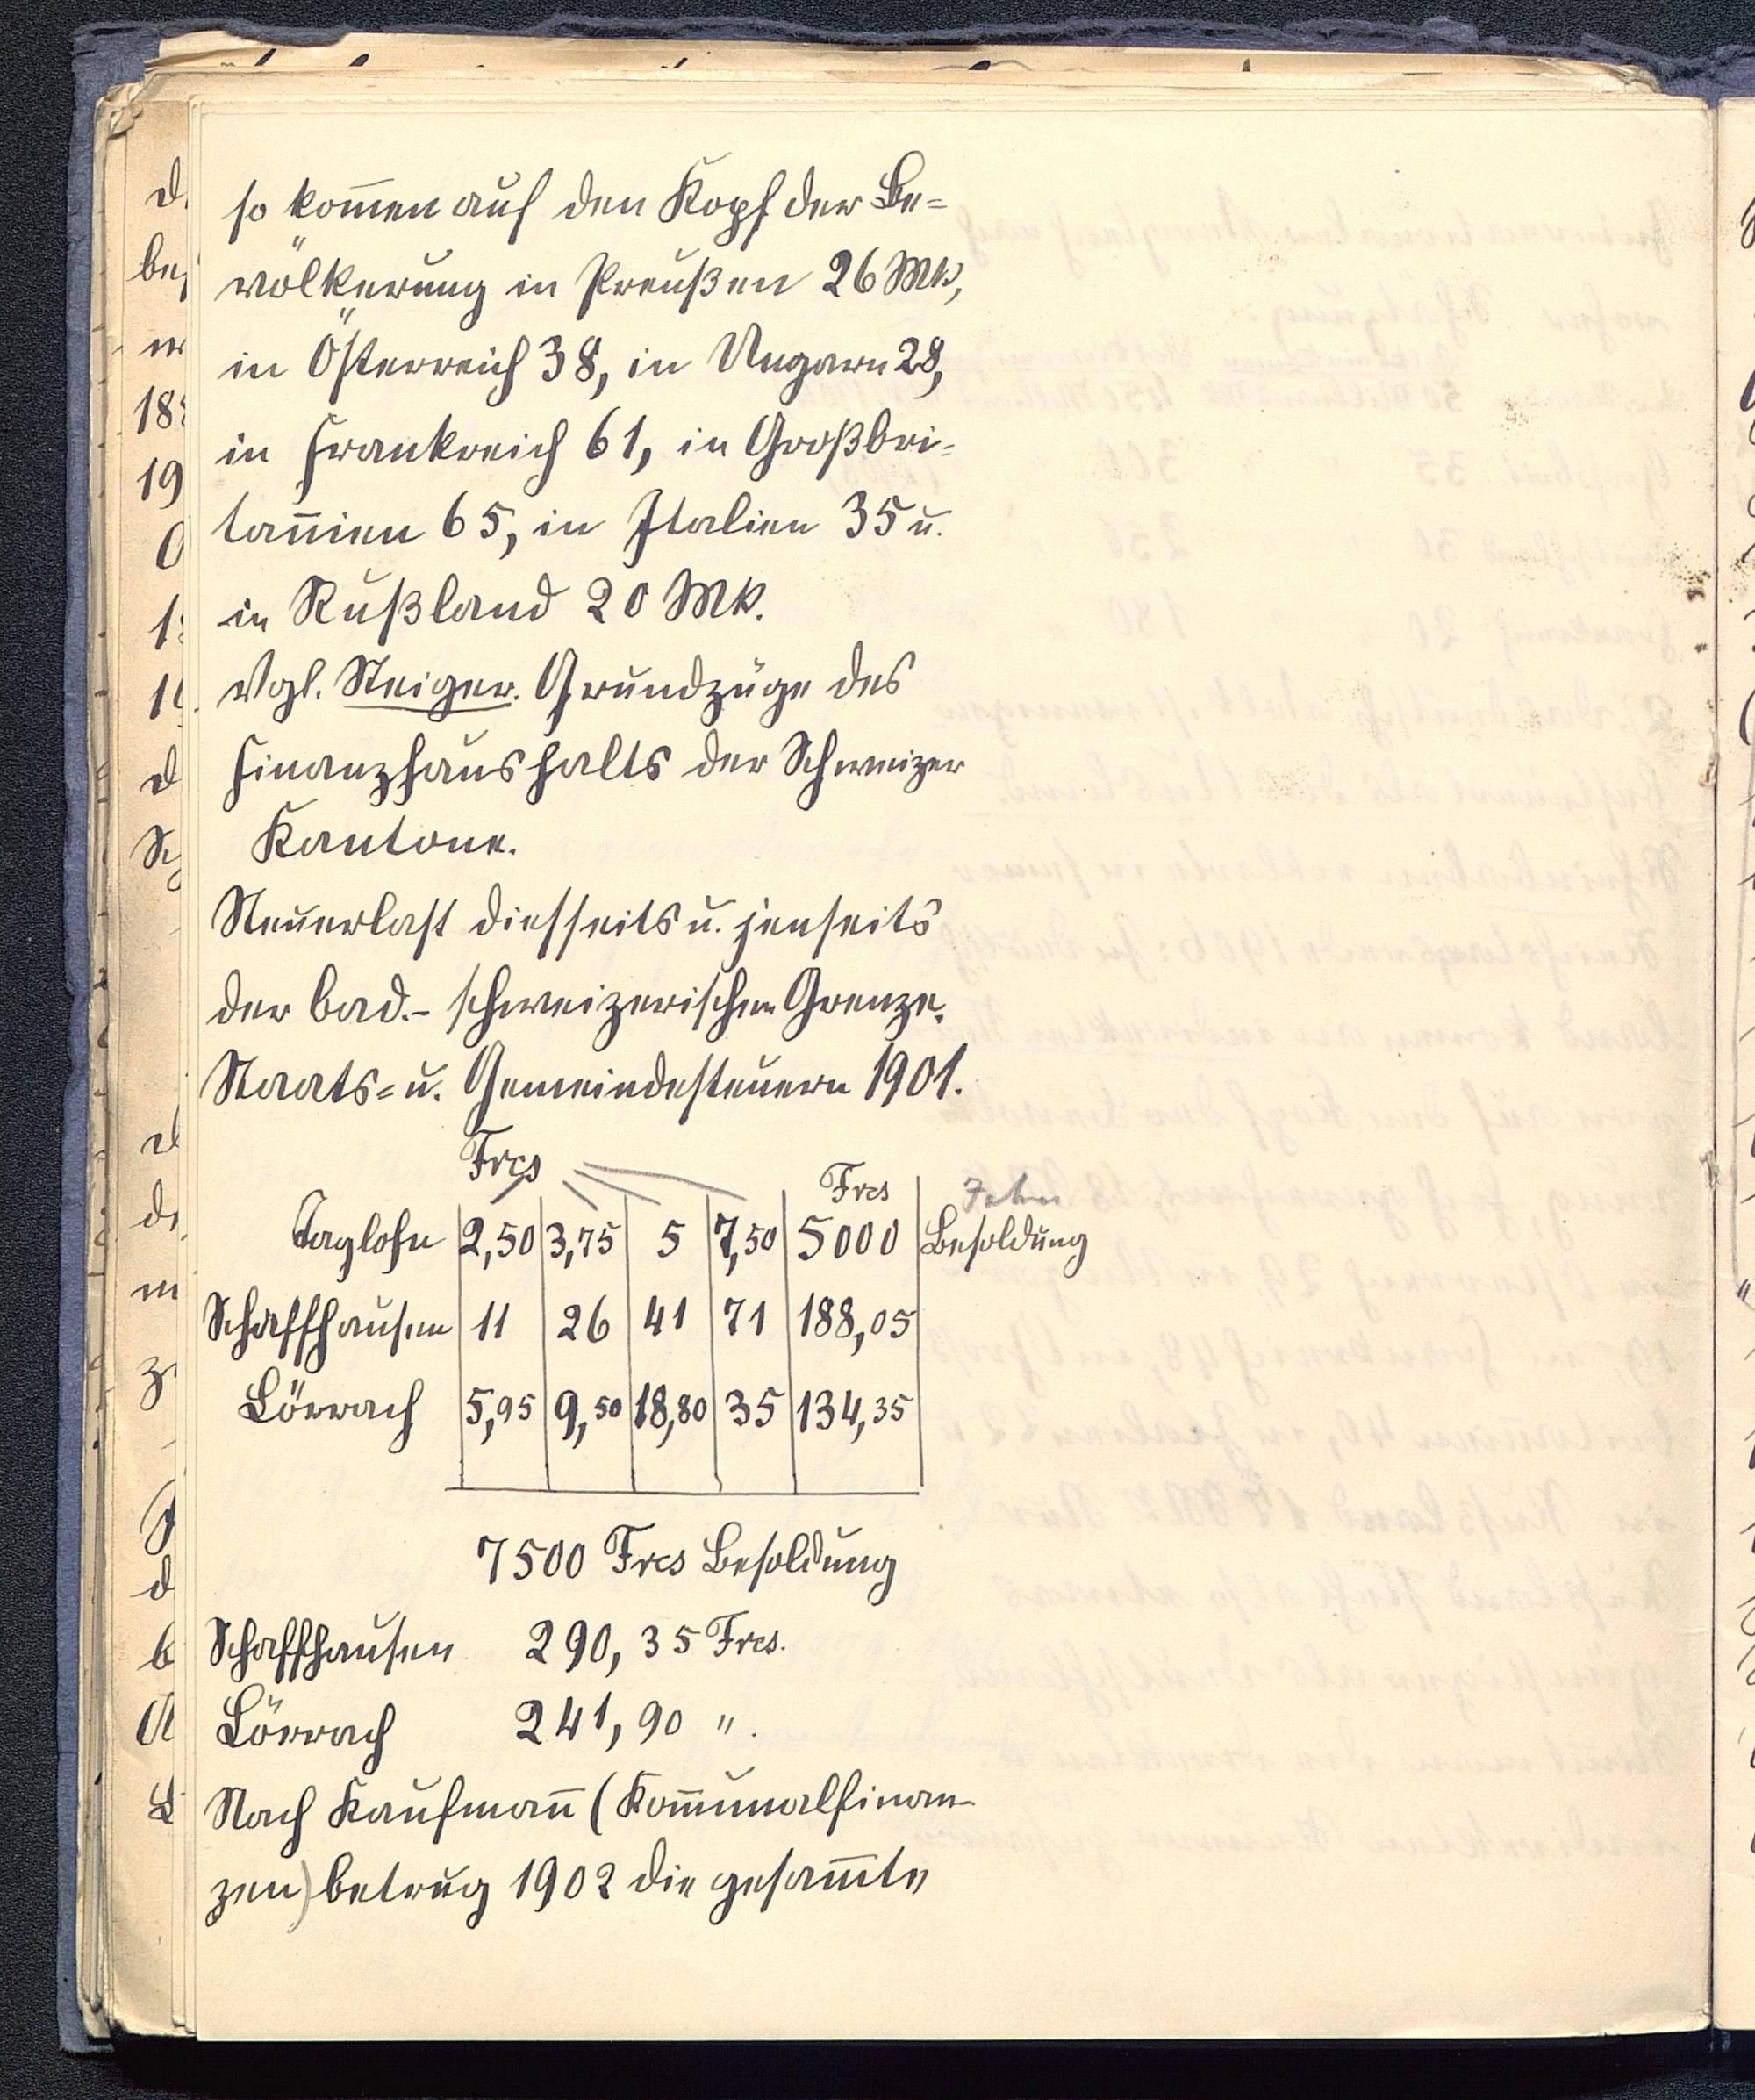 so kom̄en auf den Kopf der Be=
völkerung in Preußen 26 Mk,
in Österreich 38, in Ungarn 28,
in Frankreich 61, in Großbri=
tan̄ien 65, in Italien 35 u.
in Rußland 20 Mk.
Vgl. Steiger. Grundzüge des
Finanzhaushalts der Schweizer
Kantone.
Steuerlast diesseits u. jenseits
der bad.- schweizerischen Grenze.
Staats= u. Gemeindesteuern 1901.
Frcs Frcs Jahres
Taglohn 2,50 3,75 5 7,50 5000 Besoldung
Schaffhausen 11 26 41 71 188,05
Lörrach 5,95 9,50 18,80 35 134,35
7500 Frcs Besoldung
Schaffhausen 290,35 Frcs.
Lörrach 241,90 ".
Nach Kaufman̄ (Kom̄unalfinan-
zen) betrug 1902 die gesam̄te